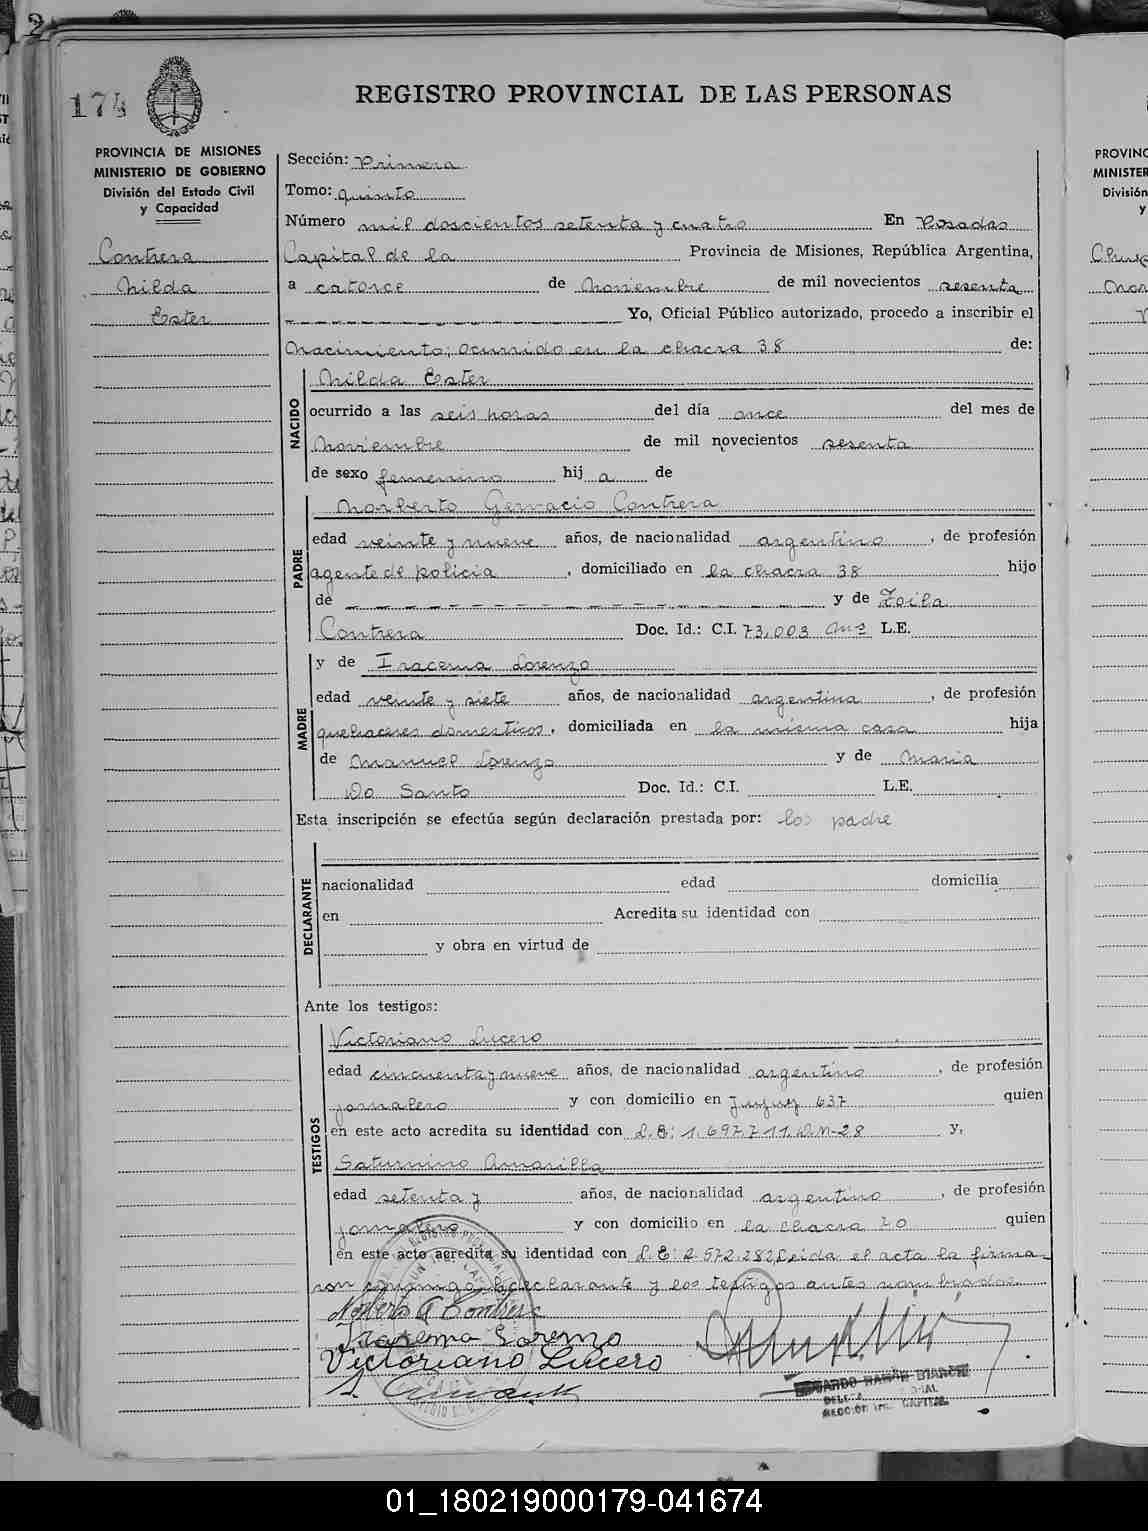 174
REGISTRO PROVINCIAL DE LAS PERSONAS
PROVINCIA DE MISIONES
MINISTERIO DE GOBIERNO
División del Estado Civil
y Capacidad
Contrera
Nilda
Ester
Sección: Primera
Tomo: quinto
Número mil doscientos setenta y cuatro En Posadas
Capital de la Provincia de Misiones, República Argentina,
a catorce de Noviembre de mil novecientos sesenta
Yo, Oficial Público autorizado, procedo a inscribir el
Nacimiento; ocurrido en la chacra 38 de:
NACIDO
Nilda Ester
ocurrido a las seis horas del día once del mes de
Noviembre de mil novecientos sesenta
de sexo femenino hij a de
PADRE
Norberto Gervacio Contrera
edad veinte y nueve años, de nacionalidad argentino, de profesión
agente de policia, domiciliado en la chacra 38 hijo
de y de Zoila
Contrera Doc. Id.: C.I. 73,003 L.E.
MADRE
y de Iracema Lorenzo
edad veinte y siete años, de nacionalidad argentina, de profesión
quehaceres domesticos, domiciliada en la misma casa hija
de Manuel Lorenzo y de Maria
Do Santo Doc. Id.: C.I. L.E.
Esta inscripción se efectúa según declaración prestada por: los padre
DECLARANTE
nacionalidad edad domicilia
en Acredita su identidad con
y obra en virtud de
Ante los testigos:
TESTIGOS
Victoriano Lucero
edad cincuenta y nueve años, de nacionalidad argentino, de profesión
jornalero y con domicilio en Jujuy 637 quien
en este acto acredita su identidad con L.E: 1.697.711.D.M-28 y,
Saturnino Amarilla
edad setenta y años, de nacionalidad argentino, de profesión
jornalero y con domicilio en la chacra 20 quien
en este acto acredita su identidad con L.E: 2.572.282 Leida el acta la firma-
ron conmigo, declarante y los testigos antes nombrados
Norberto G Contrera
Iracema Lorenzo
Victoriano Lucero
EDUARDO RAMÓN
PROVINC
MINISTER
División
y
01_180219000179-041674